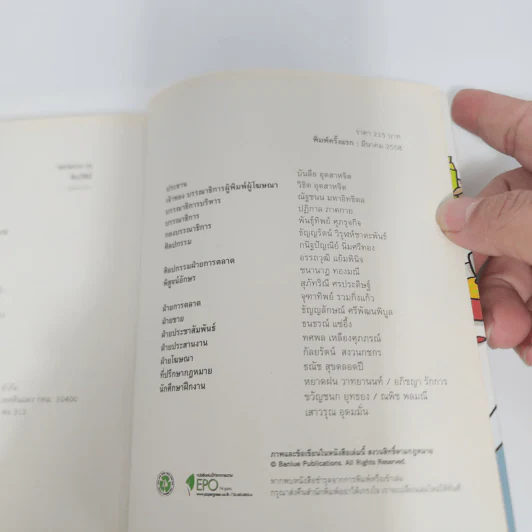 ราคา 215 บาท
พิมพ์ครั้งแรก : มีนาคม 2558
ประธาน
บันลือ อุตสาหจิต
เจ้าของ บรรณาธิการผู้พิมพ์ผู้โฆษณา
วิธิต อุตสาหจิต
บรรณาธิการบริหาร
ณัฐชนน มหาอิทธิดล
บรรณาธิการ
ปฏิกาล ภาคกาย
กองบรรณาธิการ
พันธุ์ทิพย์ ศุภรุจกิจ
ธัญญรัตน์ วิรุฬห์ชาตะพันธ์
ศิลปกรรม
กนิษฐ์ปัณณีย์ นิ่มศรีทอง
อรรถวุฒิ แย้มพินิจ
ศิลปกรรมฝ่ายการตลาด
ชนานาฏ ทองมณี
พิสูจน์อักษร
สุภัทริณี ศรประดิษฐ์
จุฑาทิพย์ รวมกิ่งแก้ว
ฝ่ายการตลาด
ธัญญลักษณ์ ศรีพัฒนพิบูล
ฝ่ายขาย
ธนธรณ์ แซ่อึ๊ง
ฝ่ายประชาสัมพันธ์
ทศพล เหลืองศุภภรณ์
ฝ่ายประสานงาน
กัลยรัตน์ สงวนกชกร
ฝ่ายโฆษณา
ธณัช สุขตลอดปี
ที่ปรึกษากฎหมาย
หยาดฝน วาทยานนท์ / อภิชญา รักการ
นักศึกษาฝึกงาน
ขวัญชนก ยุทธยง / ณพิช พลมณี
เสาวรุณ อุดมมั่น
ภาพและข้อเขียนในหนังสือเล่มนี้ สงวนสิทธิ์ตามกฎหมาย
© Banlue Publications. All Rights Reserved.
หากพบหนังสือชำรุดจากการพิมพ์หรือเข้าเล่ม
EPO
10400
313